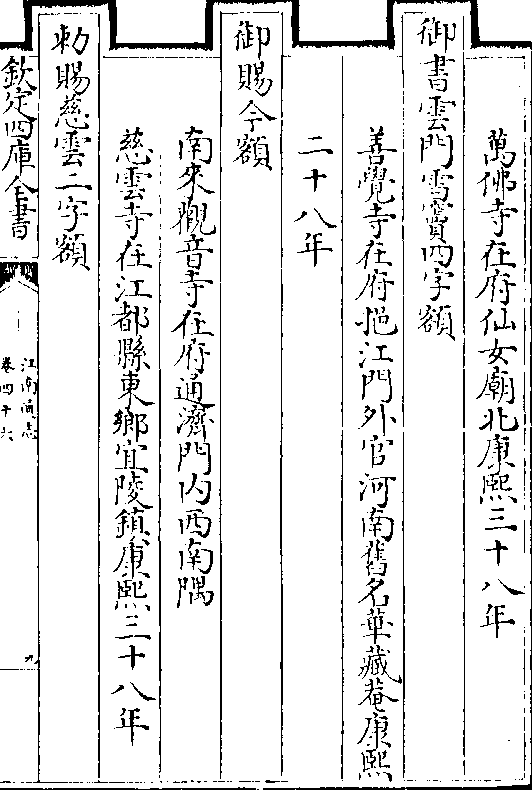 萬佛寺在府仙女廟北康熙三十八年
御書雲門雪竇四字額
善覺寺在府挹江門外官河南舊名華藏菴康熙
二十八年
御賜今額
南來觀音寺在府通濟門内西南隅
慈雲寺在江都縣東鄉宜陵鎮康熙三十八年
勅賜慈雲二字額
欽定四庫全書
江南通志
卷四十六
九